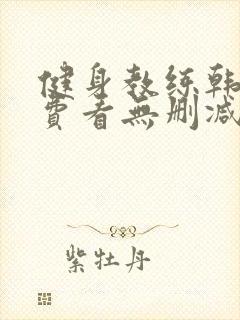 健身教练韩
费看無删减
紫牡丹